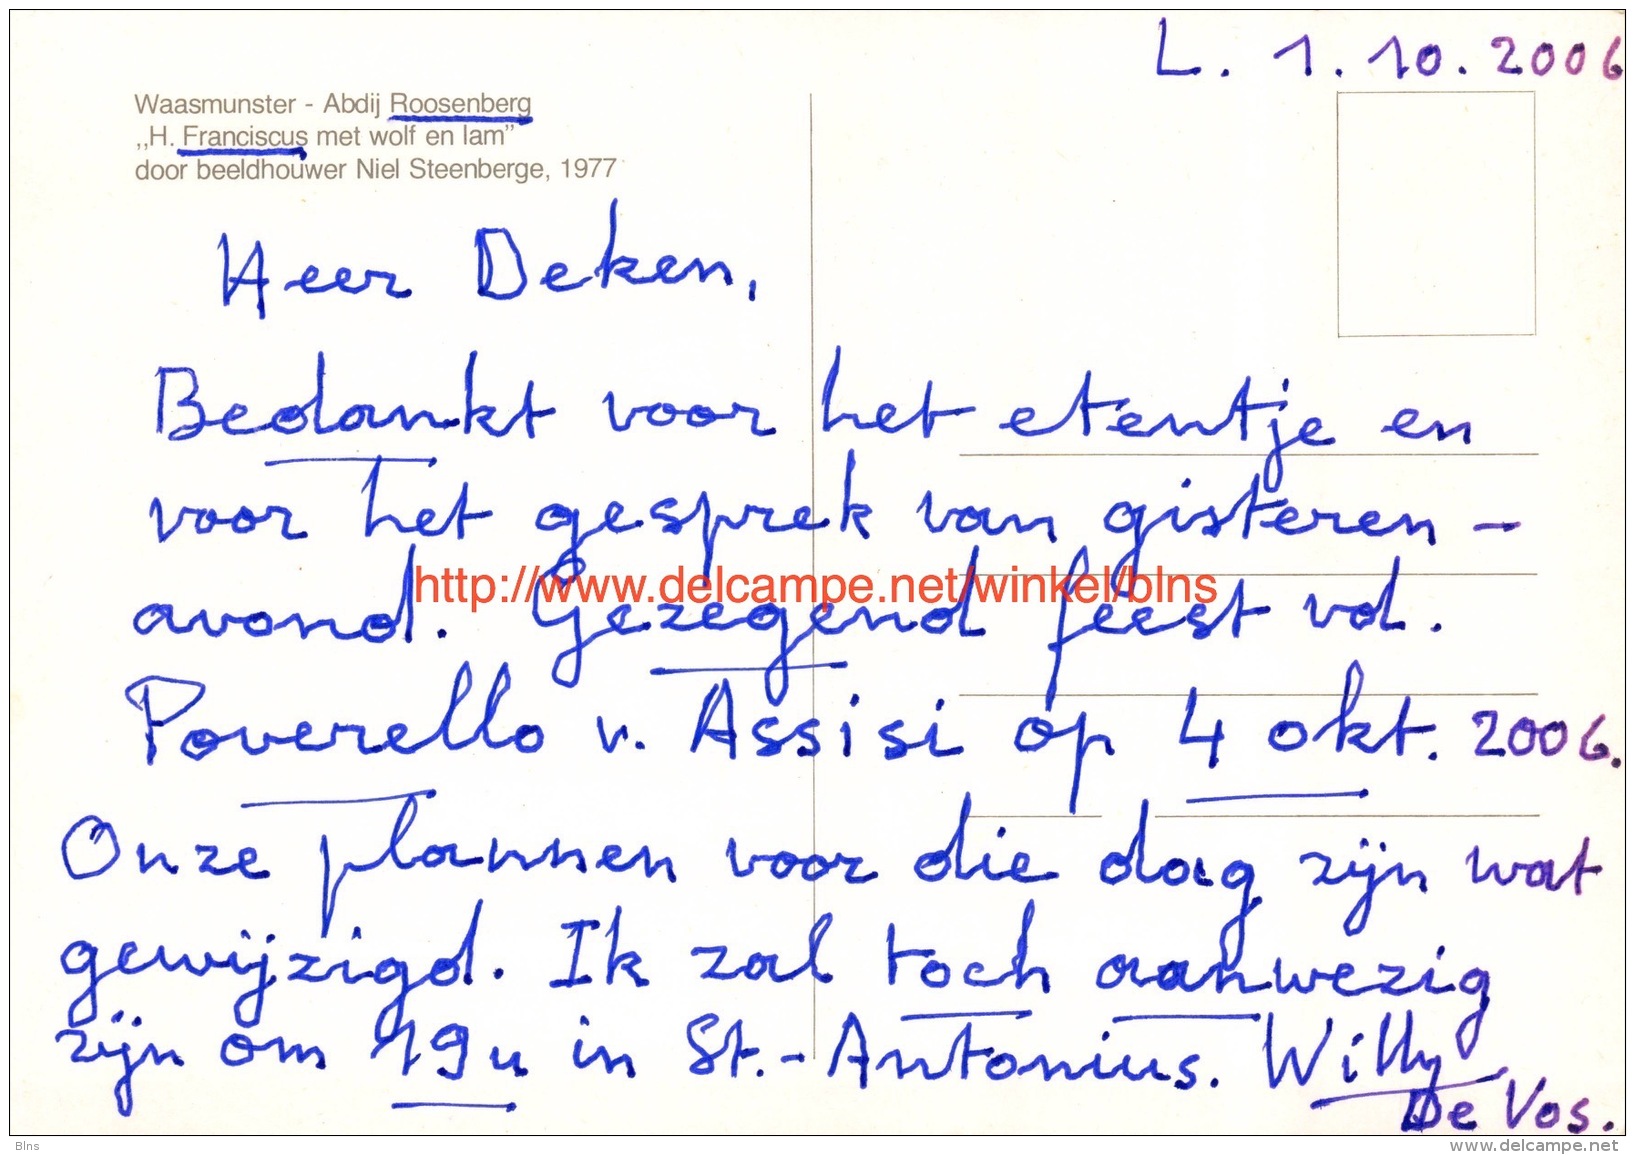 L. 1. 10. 2006
Waasmunster - Abdij Roosenberg
„H. Franciscus met wolf en lam”
door beeldhouwer Niel Steenberge, 1977
Heer Deken,
Bedankt voor het etentje en
voor het gesprek van gisteren -
http://www.delcampe.net/winkel/blns
avond. Gezegend feest vd.
Poverello v. Assisi op 4 okt. 2006.
Onze plannen voor die dag zijn wat
gewijzigd. Ik zal toch aanwezig
zijn om 19u in St.-Antonius. Willy
De Vos.
Blns
www.delcampe.net